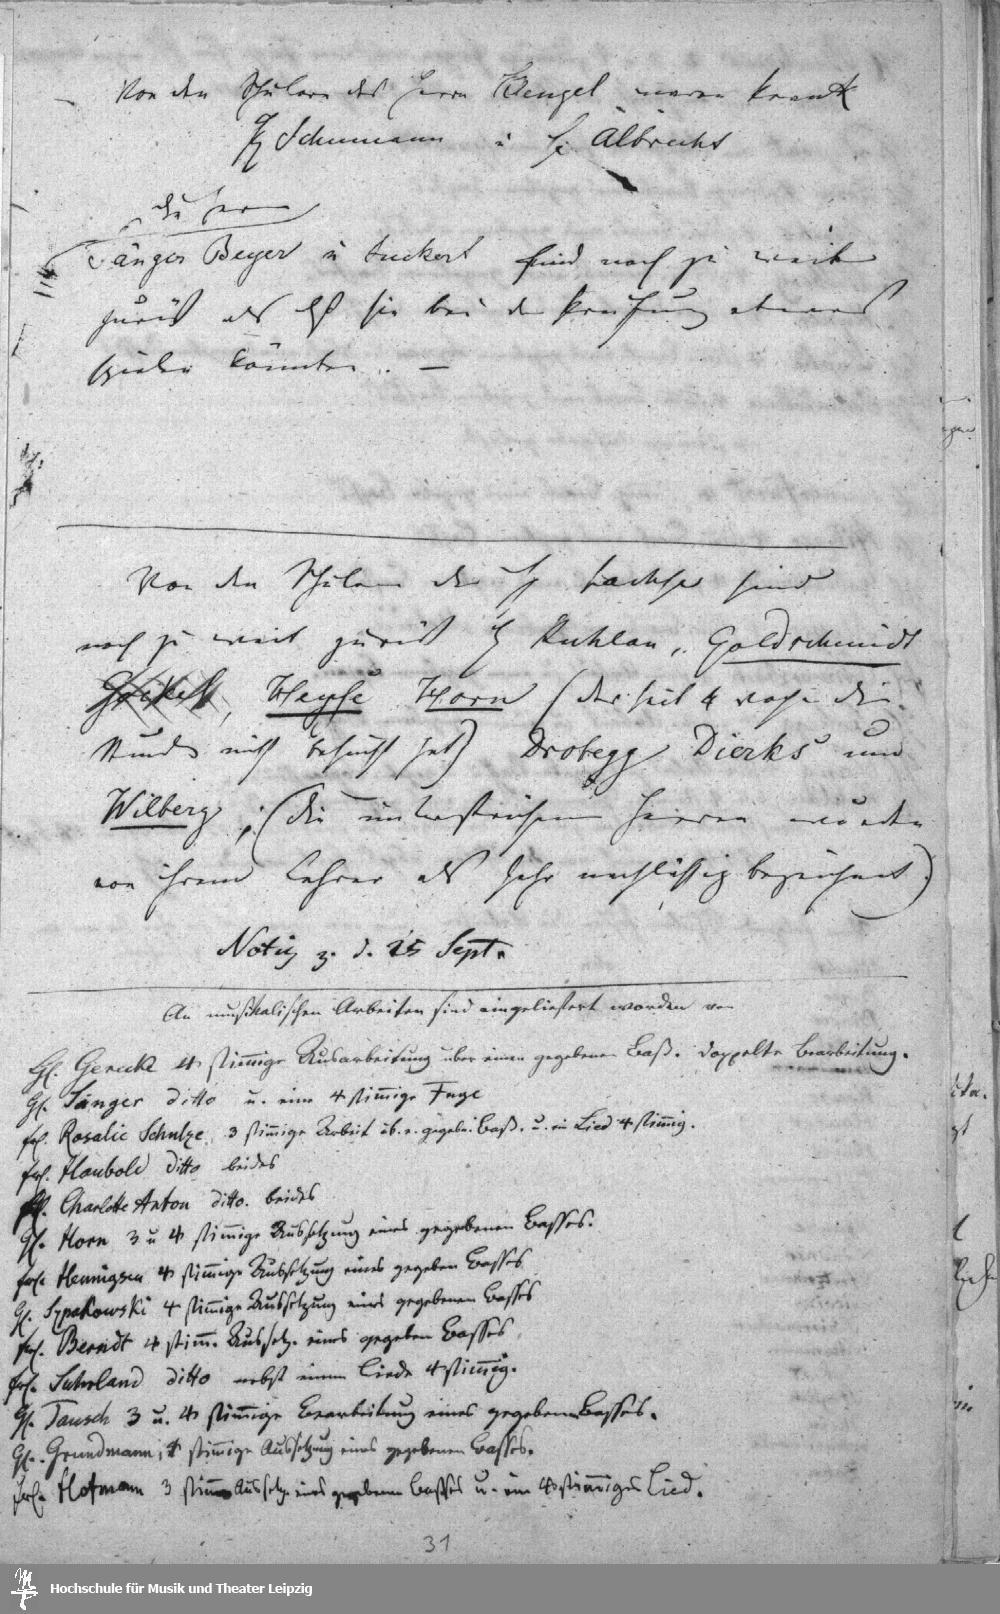 Von den Schülern des Herrn Wengel waren krank
H Schumann u H. Albrecht
die Herrn
Sänger Beyer u Tuckert sind noch zu weit
zurück als daß sie bei der Prüfung etwas
spielen könnten. —
Von den Schülern des H Sachse sind
noch zu weit zurück H Kuhlau, Goldschmidt
Heyse Horn (der seit 4 Wochen die
Stunde nicht besucht hat) Drobegg Dierks und
Wilberg; (die unterstrichenen Herren wurden
von ihrem Lehrer als sehr nachlässig bezeichnet)
Notiz z. d. 25 Sept.
An musikalischen Arbeiten sind eingeliefert worden von
H. Gericke 4 stimige Ausarbeitung über einen gegebenen Baß. doppelte Bearbeitung.
H. Sänger ditto u. eine 4 stimige Fuge
Frl. Rosalie Schulze 3 stimige Arbeit üb. e. gegebe. Baß. u. ein Lied 4 stimig.
Frl. Haubold ditto beides
Frl. Charlotte Anton ditto. beides
H. Horn 3 u 4 stimige Aussetzung eines gegebenen Basses.
Frl. Hennigsen 4 stimige Aussetzung eines gegeben Basses
H. Szpakowski 4 stimige Aussetzung eines gegebenen Basses
Frl. Berndt 4 stim. Aussetz. eines gegeben Basses
Frl. Suhrland ditto nebst einem Liede 4 stimig.
H. Tausch 3 u. 4 stimige Bearbeitung eines gegebenen Basses.
H. Grundmann, 4 stimige Aussetzung eines gegebenen Basses.
Frl. Hofmann 3 stim Aussetz. eines gegebenen Basses u. ein 4 stimiges Lied.
31
Hochschule für Musik und Theater Leipzig